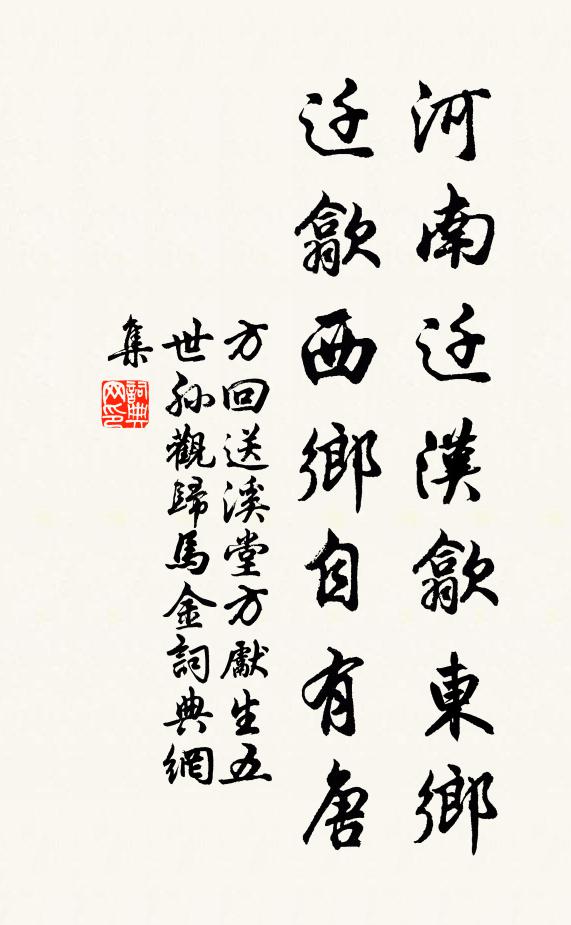 河南迁漢歙東鄉
迁歙西鄉自有唐
方回送溪堂方獻生五
世孫觀歸馬金詞典網
集
詞典网印